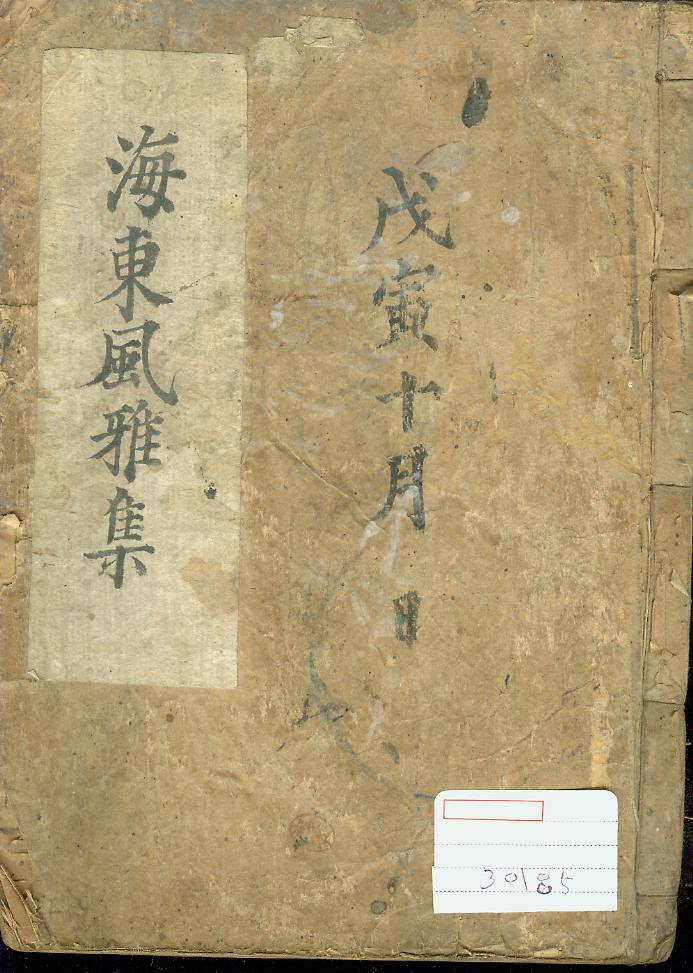 戊寅十月 日
海東風雅集
30185